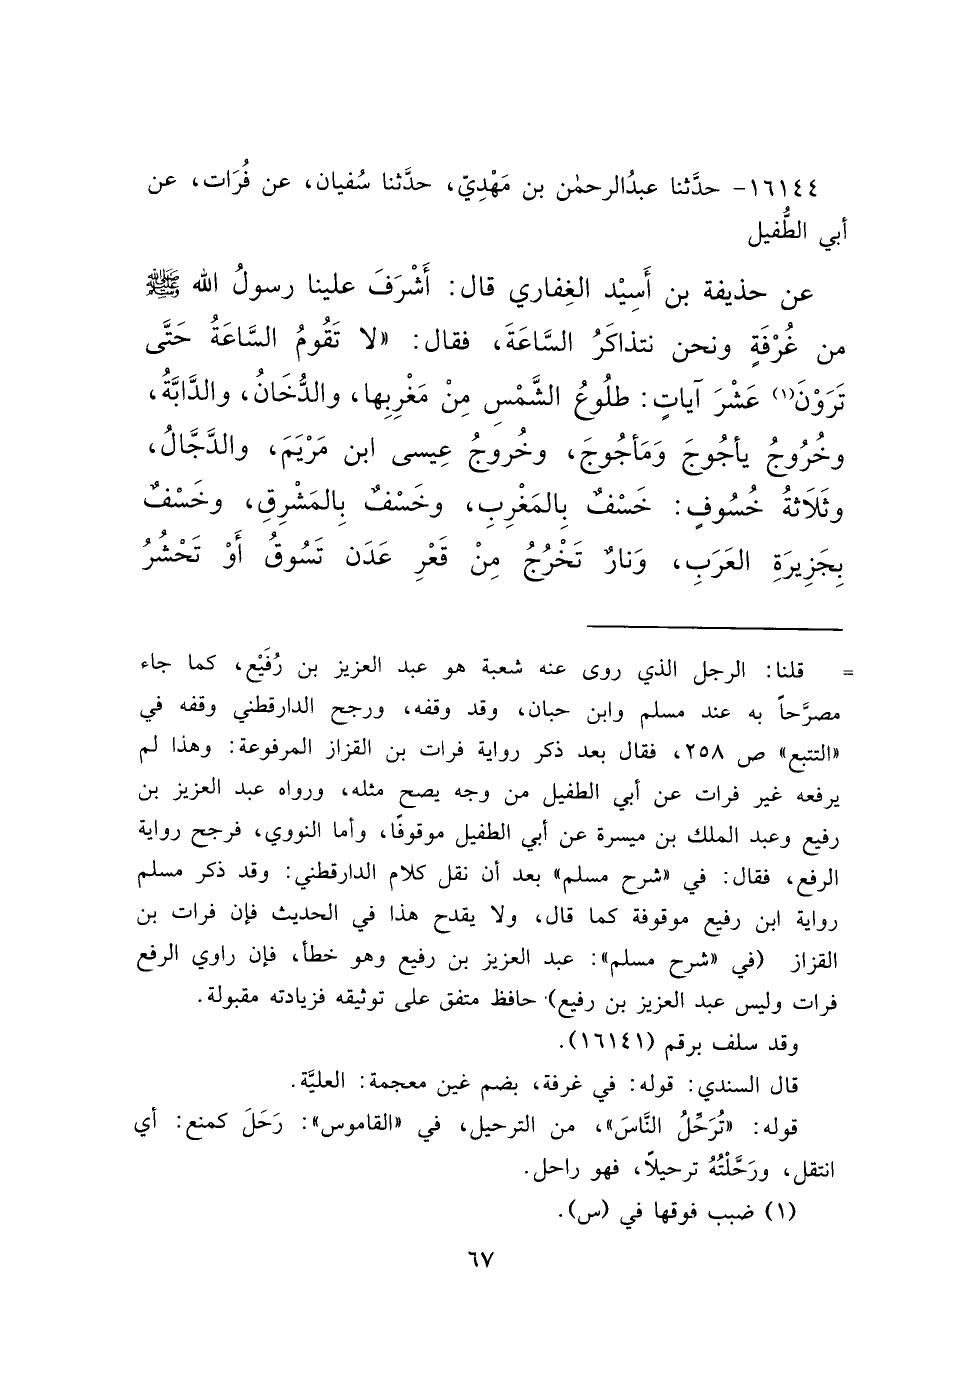 ١٦١٤٤- حدَّثنا عبدُالرحمٰن بن مَهْدِيّ، حدَّثنا سُفيان، عن فُرَات، عن
أبي الطُّفيل
عن حذيفة بن أَسِيْد الغِفاري قال: أَشْرَفَ علينا رسولُ الله ﷺ
من غُرْفَةٍ ونحن نتذاكَرُ السَّاعَةَ، فقال: «لا تَقُومُ السَّاعَةُ حَتَّى
تَرَوْنَ(١) عَشْرَ آياتٍ: طلُوعُ الشَّمْسِ مِنْ مَغْرِبِها، والدُّخَانُ، والدَّابَّةُ،
وخُرُوجُ يأجُوجَ وَمَأجُوجَ، وخُروجُ عِيسى ابن مَرْيَمَ، والدَّجَّالُ،
وثَلَاثةُ خُسُوفٍ: خَسْفٌ بِالمَغْرِبِ، وخَسْفٌ بِالمَشْرِقِ، وخَسْفٌ
بِجَزِيرَةِ العَرَبِ، وَنارٌ تَخْرُجُ مِنْ قَعْرِ عَدَن تَسُوقُ أَوْ تَحْشُرُ
= قلنا: الرجل الذي روى عنه شعبة هو عبد العزيز بن رُفَيْع، كما جاء
مصرَّحاً به عند مسلم وابن حبان، وقد وقفه، ورجح الدارقطني وقفه في
«التتبع» ص ٢٥٨، فقال بعد ذكر رواية فرات بن القزاز المرفوعة: وهذا لم
يرفعه غير فرات عن أبي الطفيل من وجه يصح مثله، ورواه عبد العزيز بن
رفيع وعبد الملك بن ميسرة عن أبي الطفيل موقوفًا، وأما النووي، فرجح رواية
الرفع، فقال: في «شرح مسلم» بعد أن نقل كلام الدارقطني: وقد ذكر مسلم
رواية ابن رفيع موقوفة كما قال، ولا يقدح هذا في الحديث فإن فرات بن
القزاز (في «شرح مسلم»: عبد العزيز بن رفيع وهو خطأ، فإن راوي الرفع
فرات وليس عبد العزيز بن رفيع) حافظ متفق على توثيقه فزيادته مقبولة.
وقد سلف برقم (١٦١٤١).
قال السندي: قوله: في غرفة، بضم غين معجمة: العليَّة.
قوله: «تُرَحِّلُ النَّاسَ»، من الترحيل، في «القاموس»: رَحَلَ كمنع: أي
انتقل، ورَحَّلْتُهُ ترحيلاً، فهو راحل.
(١) ضبب فوقها في (س).
٦٧